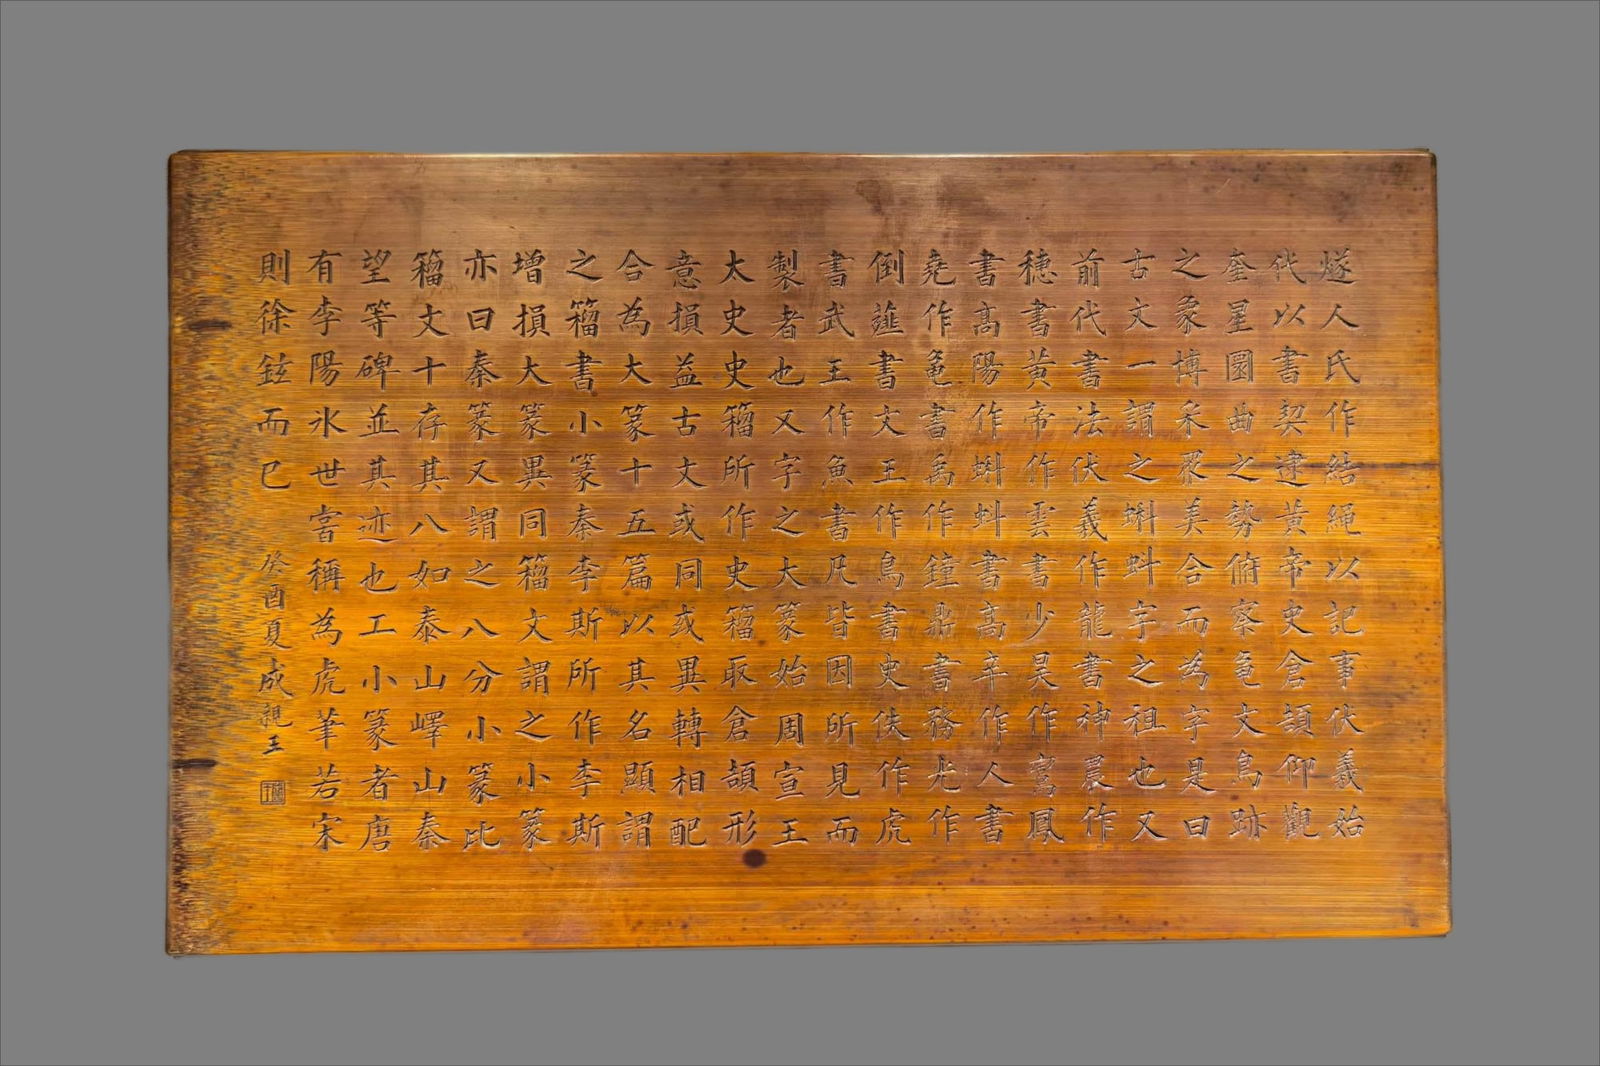 燧人氏作結繩以記事伏羲始
代以書契逮黃帝史倉頡仰觀
奎星圜曲之勢俯察龜文鳥跡
之象博采眾美合而為字是曰
古文一謂之蝌蚪字之祖也又
前代書法伏羲作龍書神農作
穗書黃帝作雲書少昊作鸞鳳
書高陽作蝌蚪書高辛作人書
堯作龜書禹作鐘鼎書務光作
倒薤書文王作鳥書史佚作虎
書武王作魚書凡皆因所見而
製者也又字之大篆始周宣王
太史史籀所作史籀取倉頡形
意損益古文或同或異轉相配
合為大篆十五篇以其名顯謂
之籀書小篆秦李斯所作李斯
增損大篆異同籀文謂之小篆
亦曰秦篆又謂之八分小篆比
籀文十存其八如泰山嶧山秦
望等碑並其迹也工小篆者唐
有李陽冰世當稱為虎筆若宋
則徐鉉而已
癸酉夏成親王